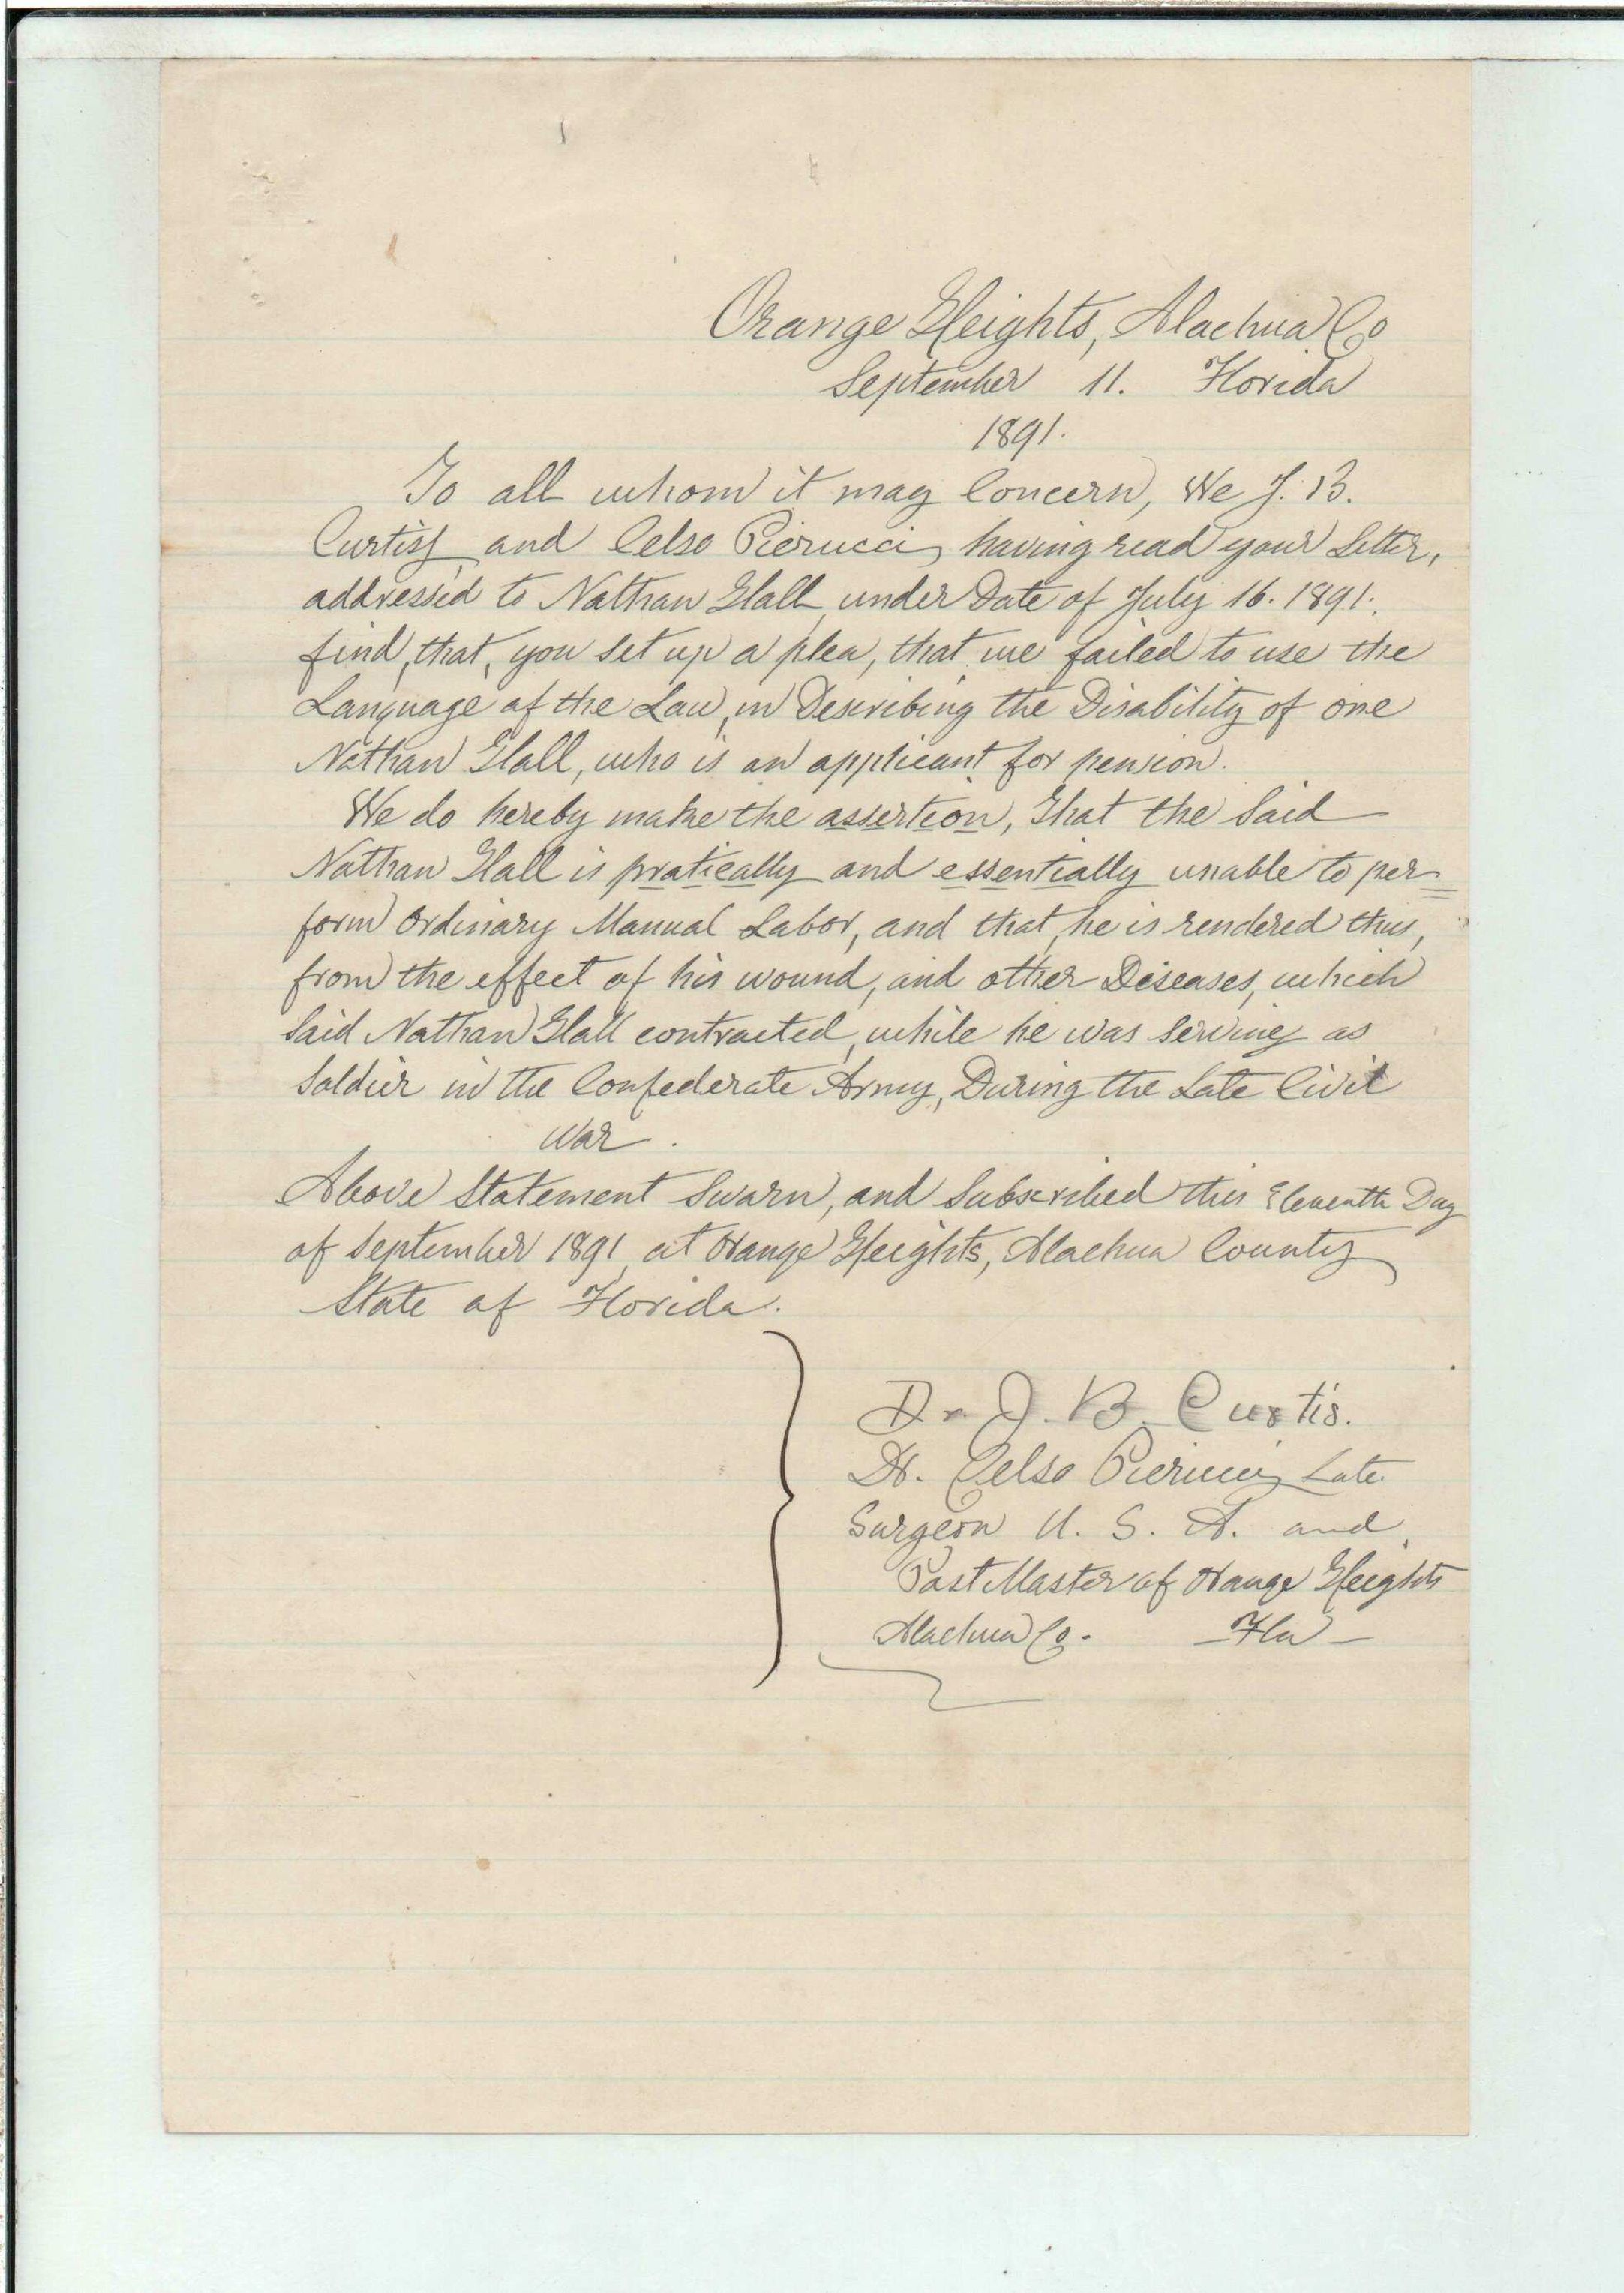 Orange Heights, Alachua Co
September 11. Florida
1891.
To all whom it may Concern, We J. B.
Curtiss, and Celso Pierucci, having read your Letter,
addressed to Nathan Hall, under Date of July 16. 1891.
find, that, you set up a plea, that we failed to use the
Language of the Law, in Describing the Disability of one
Nathan Hall, who is an applicant for pension.
We do hereby make the assertion, that the Said
Nathan Hall is pratically and essentially unable to per=
form Ordinary Manual Labor, and that, he is rendered thus,
from the effect of his wound, and other Diseases, which
Said Nathan Hall contracted, while he was Serving as
Soldier in the Confederate Army, During the Late Civil
War.
Above Statement Swarn, and Subscribed this Eleventh Day
of September 1891, at Orange Heights, Alachua County
State of Florida.
Dr J. B. Curtis.
Dr. Celso Pierucci, Late
Surgeon U. S. A. and
Post Master of Orange Heights
Alachua Co. - Fla -